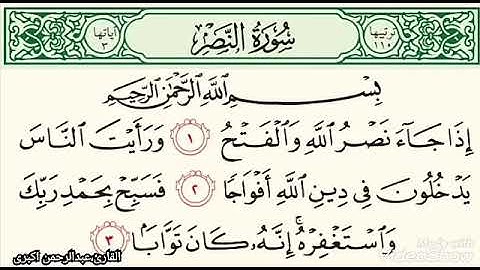 ترتيبها ١١٠ سُورَةُ النَّصْر آياتها ٣
بِسْمِ اللَّهِ الرَّحْمَٰنِ الرَّحِيمِ
إِذَا جَآءَ نَصْرُ اللَّهِ وَالْفَتْحُ ١ وَرَأَيْتَ النَّاسَ
يَدْخُلُونَ فِي دِينِ اللَّهِ أَفْوَاجًا ٢ فَسَبِّحْ بِحَمْدِ رَبِّكَ
وَاسْتَغْفِرْهُ ۚ إِنَّهُ كَانَ تَوَّابًا ٣
القارئ عبدالرحمن اكبرى
Made with
VideoShow